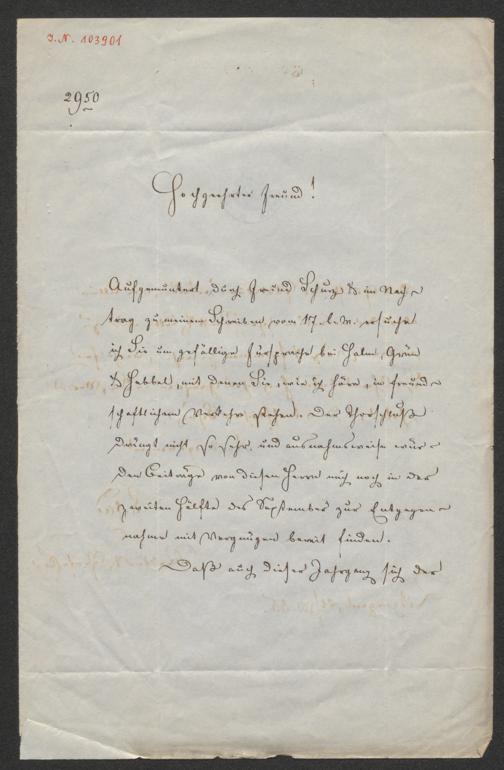 J. N. 103901
2950
Hochgeehrter Freund!
Aufgemuntert durch Freund Schurz & im Nach-
trag zu meinem Schreiben vom 17. l. M. ersuche
ich Sie um gefällige Fürsprache bei Halm, Grün
& Hebbel, mit denen Sie, wie ich höre, in freund-
schaftlichem Verkehr stehen. Der Thorschluß
drängt nicht so sehr, und ausnahmsweise wür-
den Beiträge von diesen Herrn mich noch in der
zweiten Hälfte des September zur Entgegen-
nahme mit Vergnügen bereit finden.
Daß auch dieser Jahrgang sich der